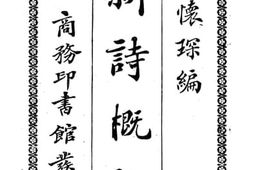 懷琛編
新詩概
商務印書館發